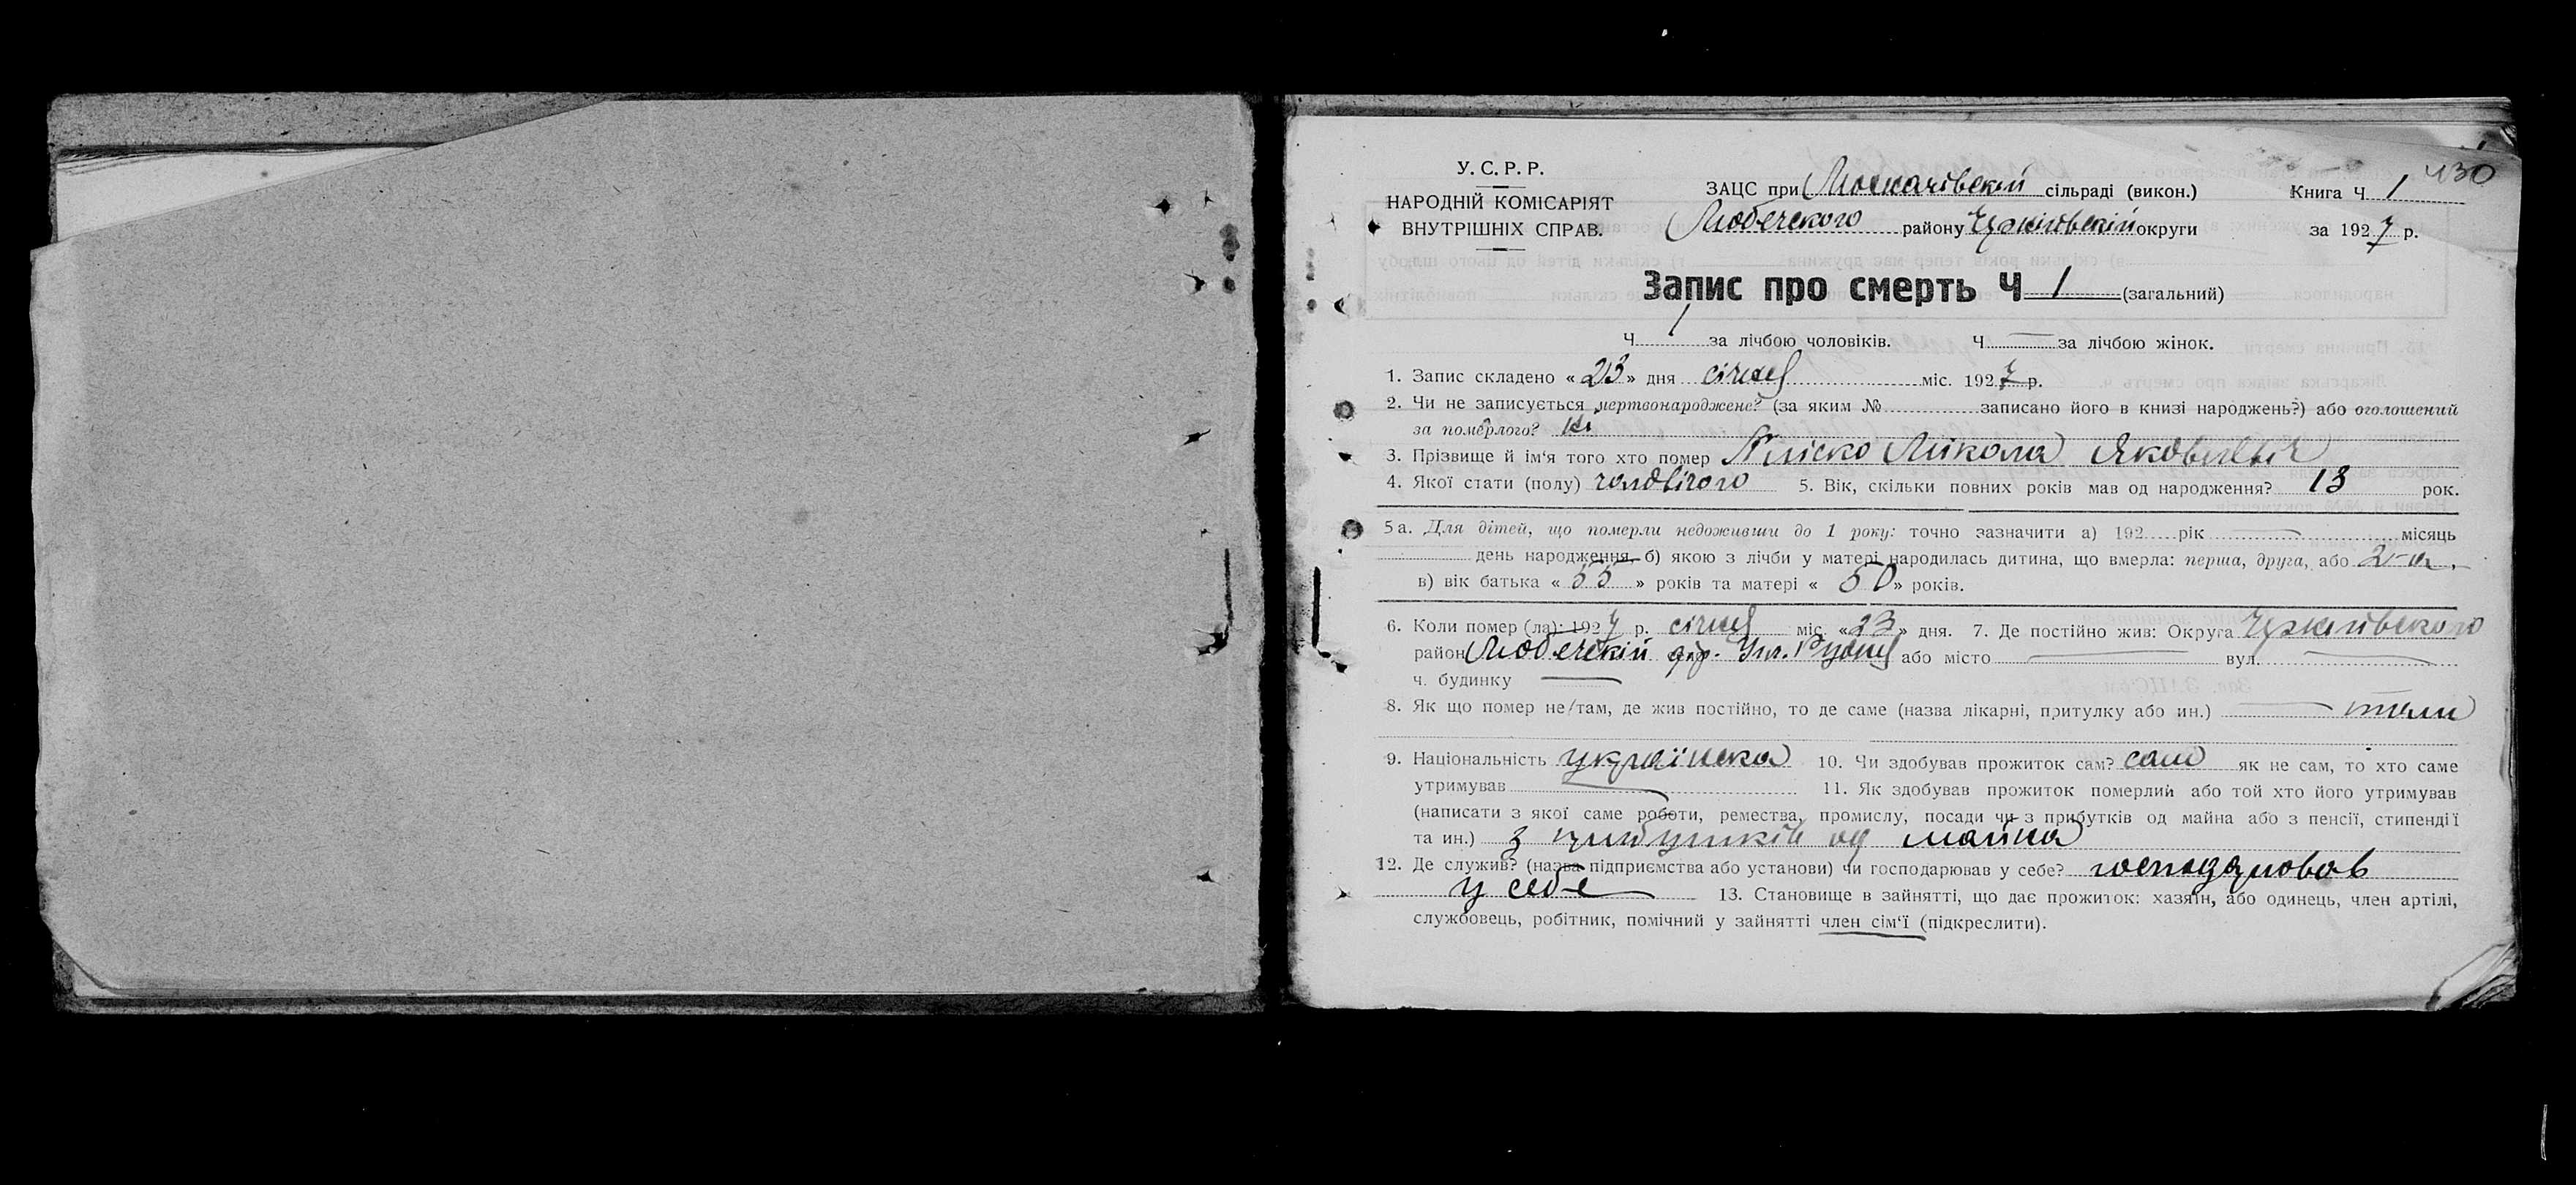 430
У. С. Р. Р.
НАРОДНІЙ КОМІСАРІЯТ
ВНУТРІШНІХ СПРАВ.
ЗАЦС при сільраді (викон.)
Любечского району округи
Книга Ч 1
за 1927 р.
Запис про смерть Ч 1 (загальний)
Ч 1 за лічбою чоловіків. Ч — за лічбою жінок.
1. Запис складено «23» дня січня міс. 1927 р.
2. Чи не записується мертвонароджене? (за яким № записано його в книзі народжень?) або оголошений
за помёрлого? Ні
3. Прізвище й ім‘я того хто помер Микола Яковлевич
4. Якої стати (полу) чоловічого 5. Вік, скільки повних років мав од народження? 13 рок.
5а. Для дітей, що померли недоживши до 1 року: точно зазначити а) 192 рік — місяць
день народження б) якою з лічби у матері народилась дитина, що вмерла: перша, друга, або 2-а
в) вік батька «55» років та матері «50» років.
6. Коли помер (ла): 1927 р. січня міс. «23» дня. 7. Де постійно жив: Округа
район Любечский Рудня або місто — вул. —
ч. будинку —
8. Як що помер не там, де жив постійно, то де саме (назва лікарні, притулку або ин.) —
9. Національність українска 10. Чи здобував прожиток сам? сам як не сам, то хто саме
утримував — 11. Як здобував прожиток померлий або той хто його утримував
(написати з якої саме роботи, ремества, промислу, посади чи з прибутків од майна або з пенсії, стипендії
та ин.) з прибутків од майна
12. Де служив? (назва підприємства або установи) чи господарював у себе? господарював
у себе 13. Становище в зайнятті, що дає прожиток: хазяїн, або одинець, член артілі,
службовець, робітник, помічний у зайнятті член сім‘ї (підкреслити).